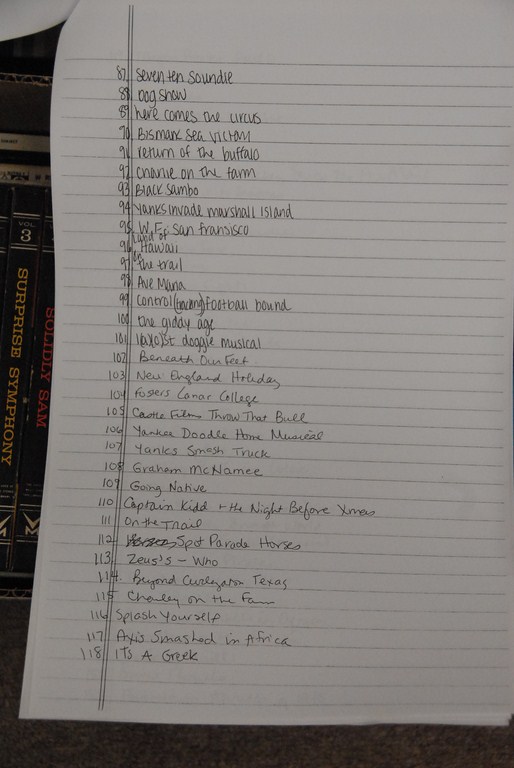 VOL. 3
SURPRISE SYMPHONY
SOLIDLY SAM
87 seventen soundie
88 Dog show
89 here comes the circus
90 Bismark Sea Victory
91 return of the buffalo
92 Charlie on the farm
93 Black Sambo
94 Yanks invade marshall island
95 W.F. San fransisco
96 Land of Hawaii
97 on the trail
98 Ave Maria
99 Control football bound
100 the giddy age
101 doggie musical
102 Beneath Our Feet
103 New England Holiday
104 Fosters Canar College
105 Castle Films Throw That Bull
106 Yankee Doodle Home Musical
107 Yanks Smash Truck
108 Graham McNamee
109 Going Native
110 Captain Kidd + the Night Before Xmas
111 On the Trail
112 Spot Parade Horses
113 Zeus's - Who
114. Beyond Texas
115 Charley on the Farm
116 Splash Yourself
117 Axis Smashed in Africa
118 ITs A Greek